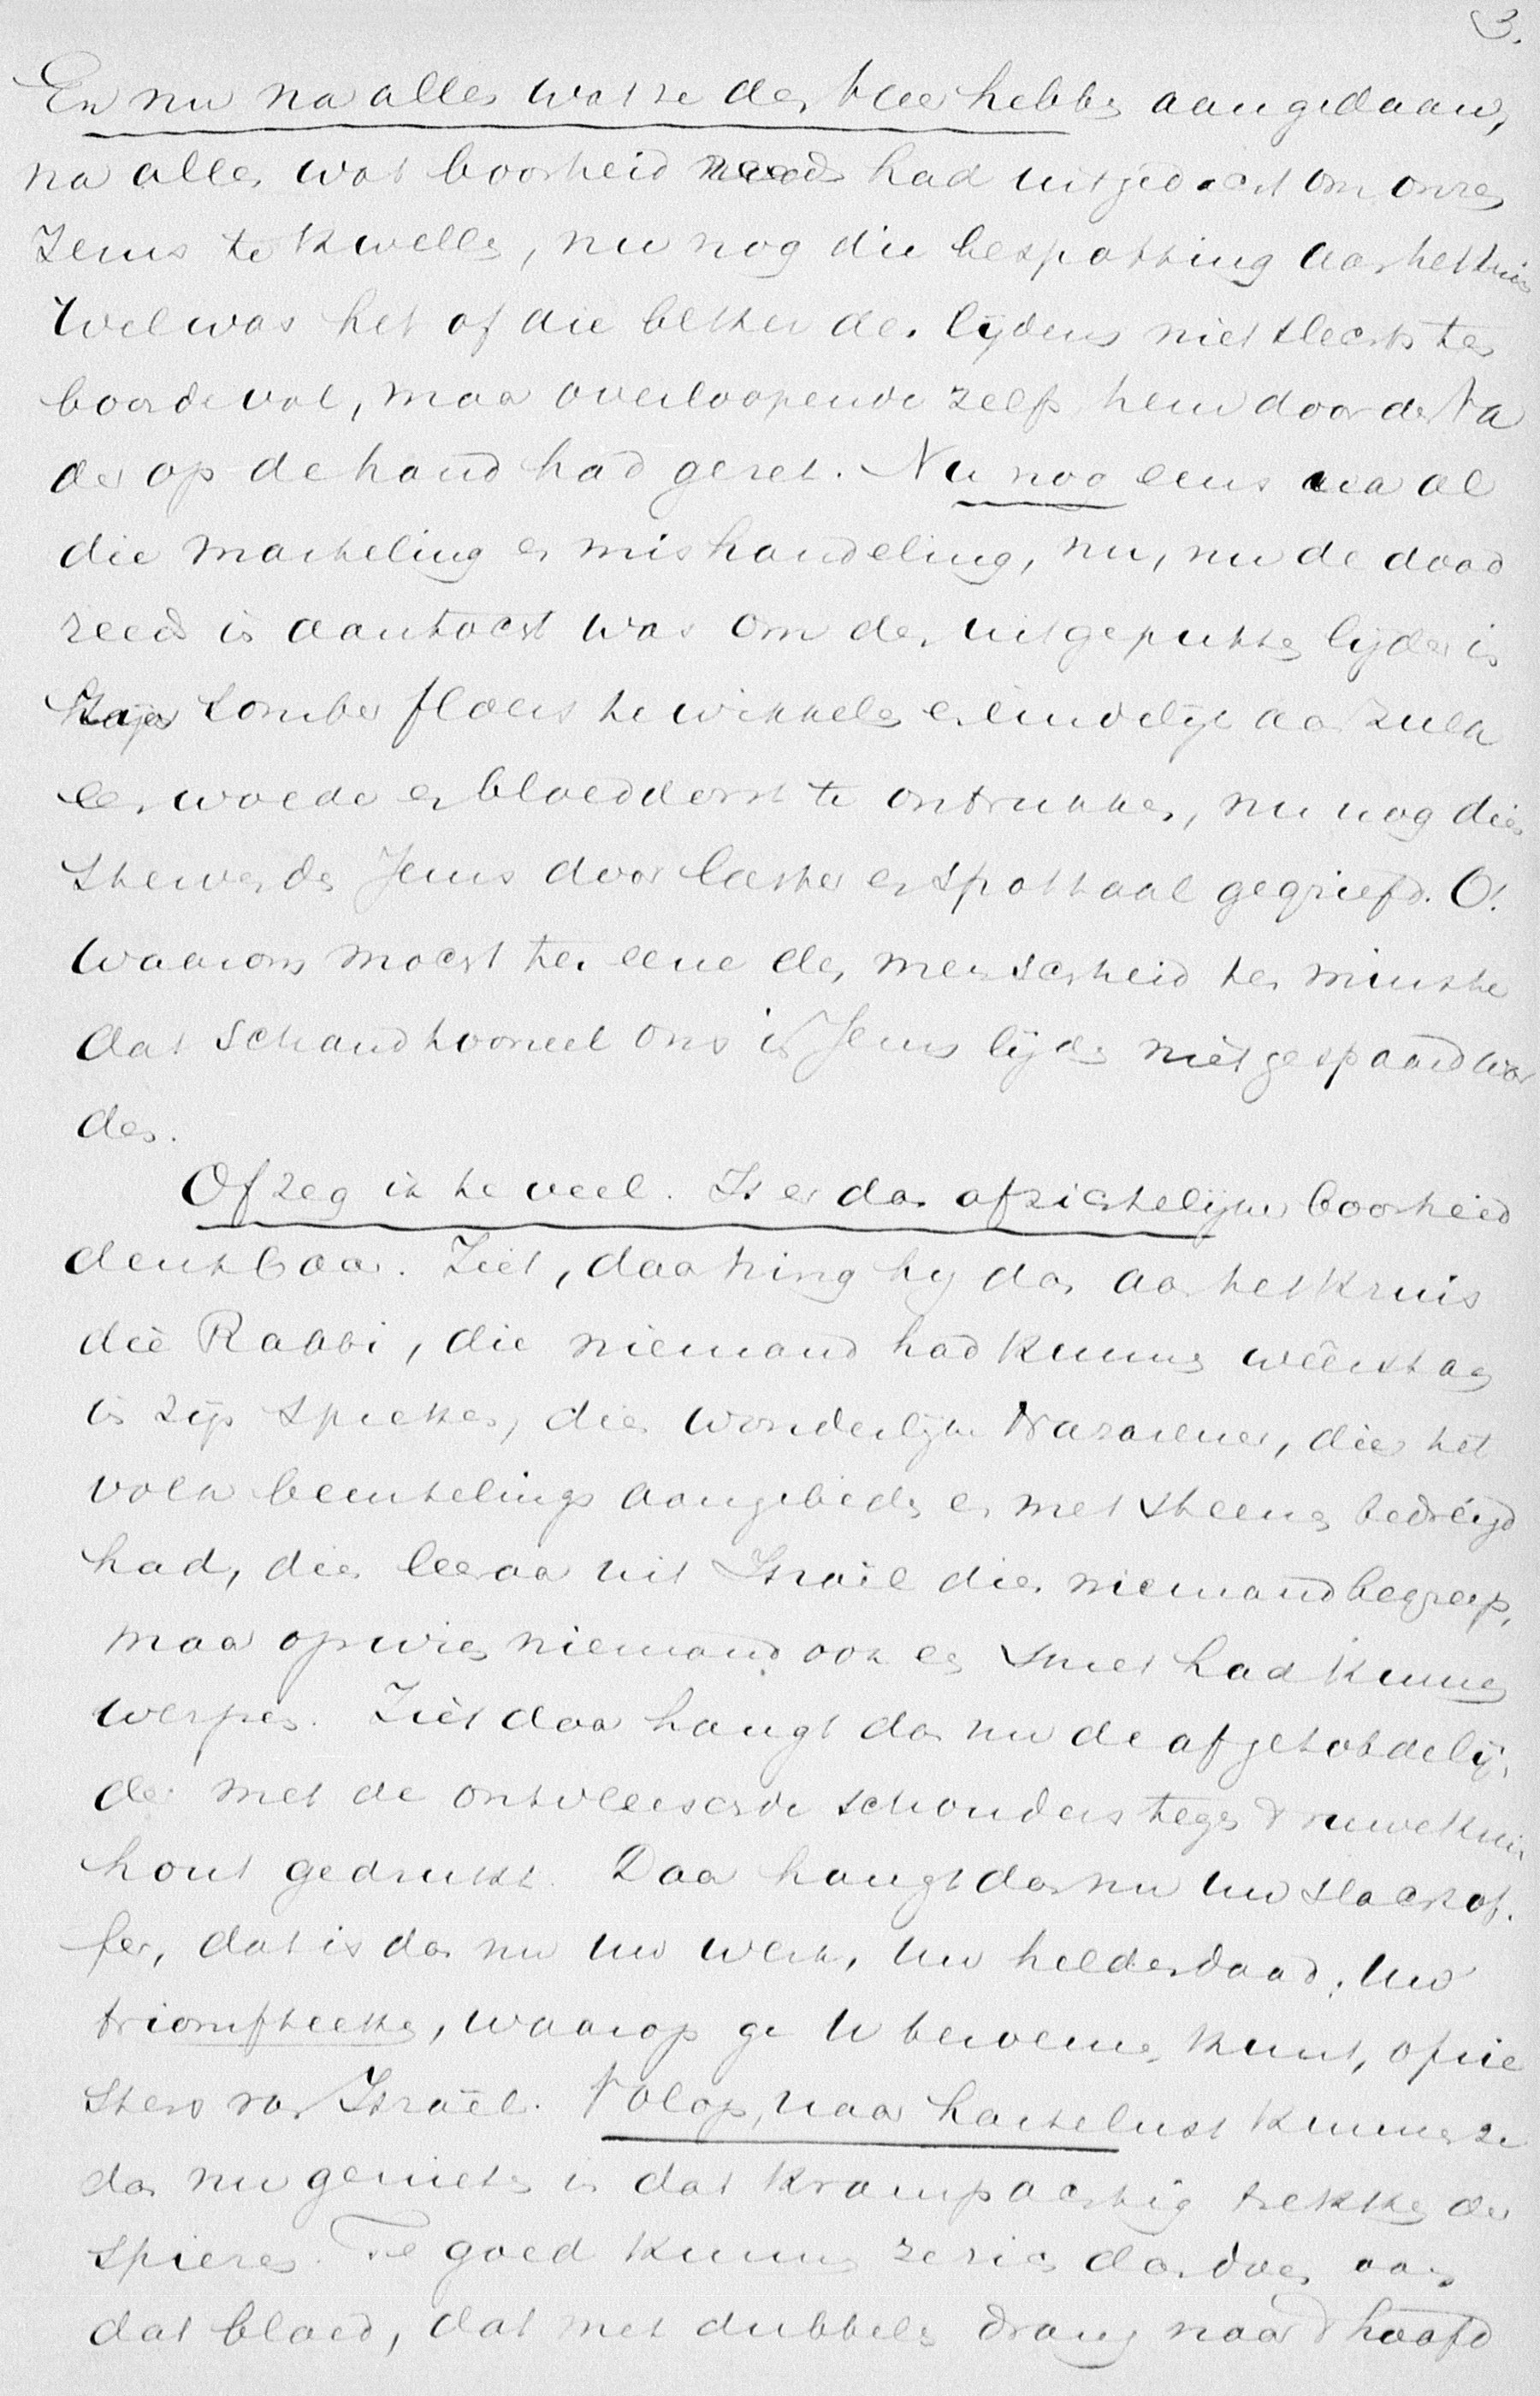 3.
En nu na alles wat ze den Heer hebben aangedaan,
na alles wat boosheid reeds had uitgedacht om onzen
Jezus te kwellen, nu nog die bespotting aan het kruis
Wel was het of die beker des lijdens niet slechts ten
boorde vol, maar overloopende zelfs hem door den Va
der op de hand had gezet. Nu nog eens na al
die marteling en mishandeling, nu, nu de dood
reeds in aantocht was om den uitgeputten lijder in
zijn somber floers te wikkelen en eindelijk aan zulk
een woede en bloeddorst te ontrukken, nu nog dien
stervenden Jezus door laster en spottaal gegriefd. O!
waarom moest ter eere der menscheid ten minste
dat schandtooneel ons in Jezus lijden niet gespaard wor
den.
Of zeg ik te veel. Is er dan afzichtelijker boosheid
denkbaar. Ziet, daar hing hij dan aan het kruis
die Rabbi, die niemand had kunnen wêerstaan
in zijn spreken, die wonderlijke Nazarener, dien het
volk beurtelings aangebeden en met steenen bedreigd
had, dien leeraar uit Israël dien niemand begreep,
maar op wien niemand ook een smet had kunnen
werpen. Ziet daar hangt dan nu de afgetobde lij-
der met de ontvleeschde schouders tegen 't ruwe kruis
hout gedrukt. Daar hangt dan nu uw slachtof-
fer, dat is dan nu uw werk, uw heldendaad, uw
triomfteeken, waarop ge U beroemen kunt, o prie
sters van Israël. Volop, naar hartelust kunnen ze
dan nu genieten in dat krampachtig trekken der
spieren. Te goed kunnen ze zich dan doen aan
dat bloed, dat met dubbelen drang naar 't hoofd